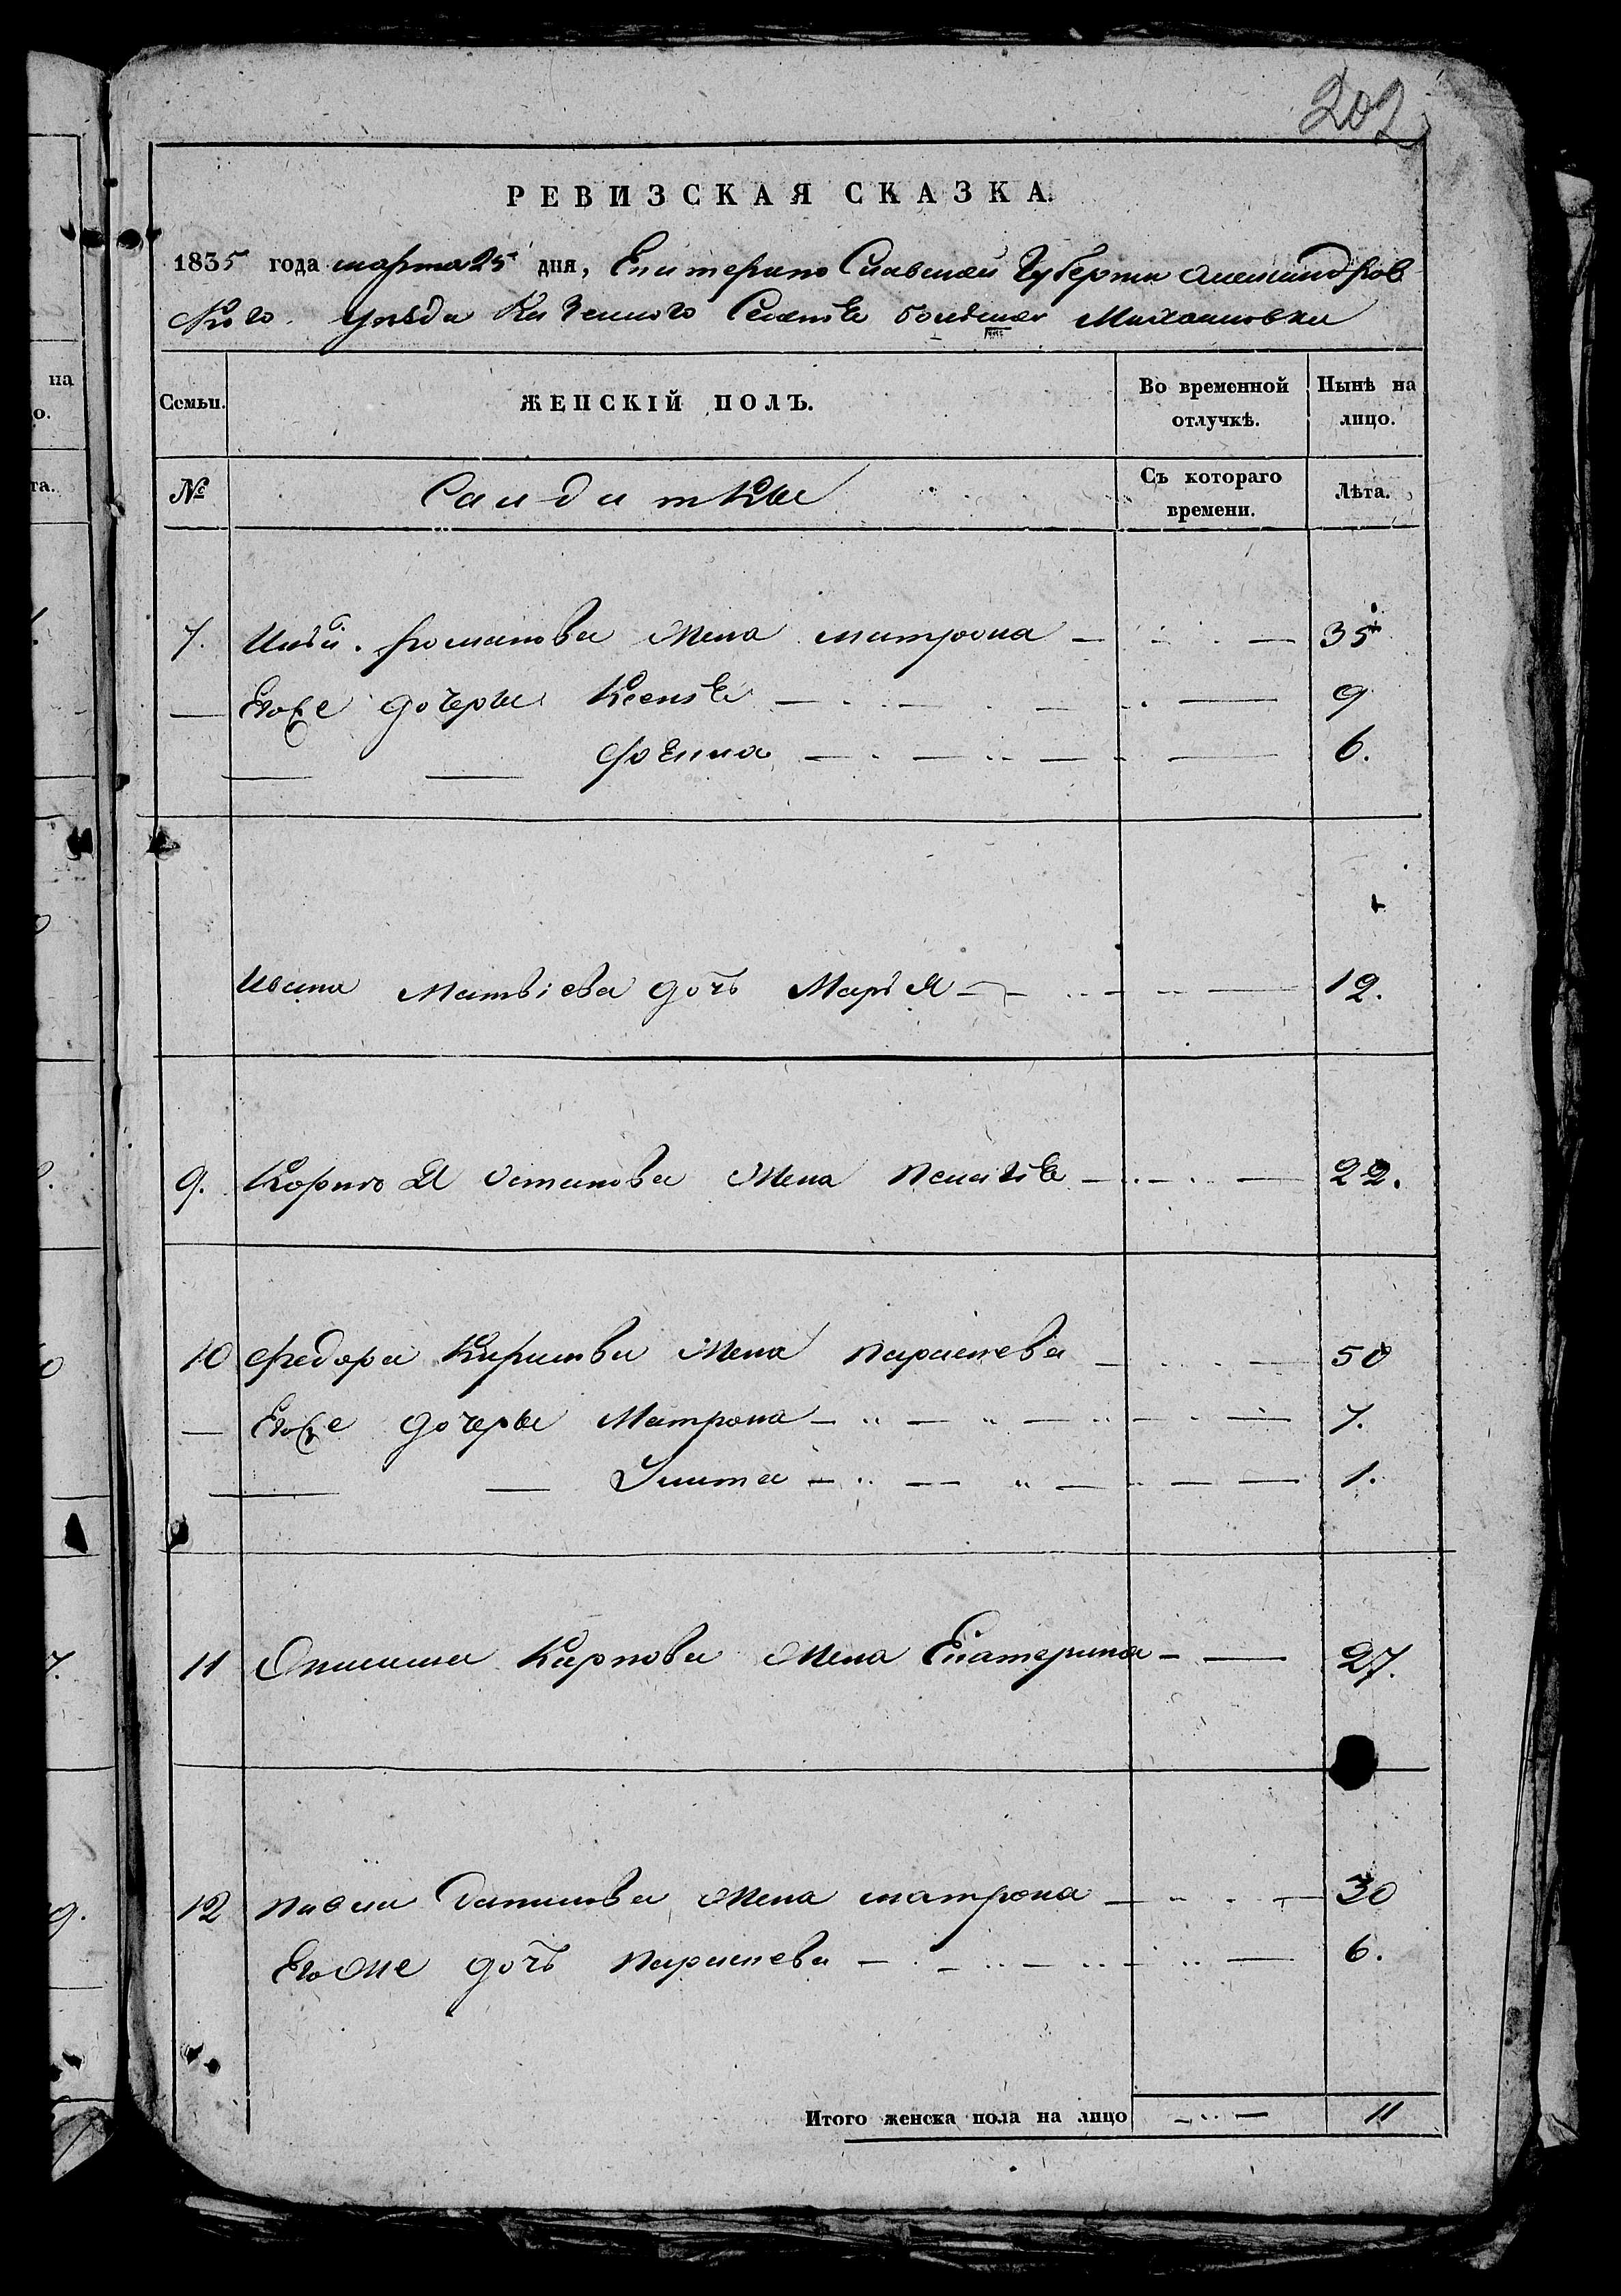 202
РЕВИЗСКАЯ СКАЗКА.
1835 года марта 25 дня, Екатерино Славской Губерти Александров
ского уѣзда Казенного Селенія большая Михаиловки
на
о.
Семьи. ЖЕНСКІЙ ПОЛЪ. Во временной отлучкѣ. Нынѣ на лицо.
та.
№ Салдатки Съ котораго времени. Лѣта.
7. Романова жена матрона 35
Егоже дочеры Ксенія 9
6.
Ивана Матвіева дочъ Марья 12.
9. Остапова жена Пелагія 22.
10 Федора Кирилова жена параскева 50
Егоже дочеры Матрона 7.
Улита 1.
11 Карпова жена Екатерина 27.
12 павла Данилова жена матрона 30
Егоже дочъ параскева 6.
Итого женска пола на лицо 11